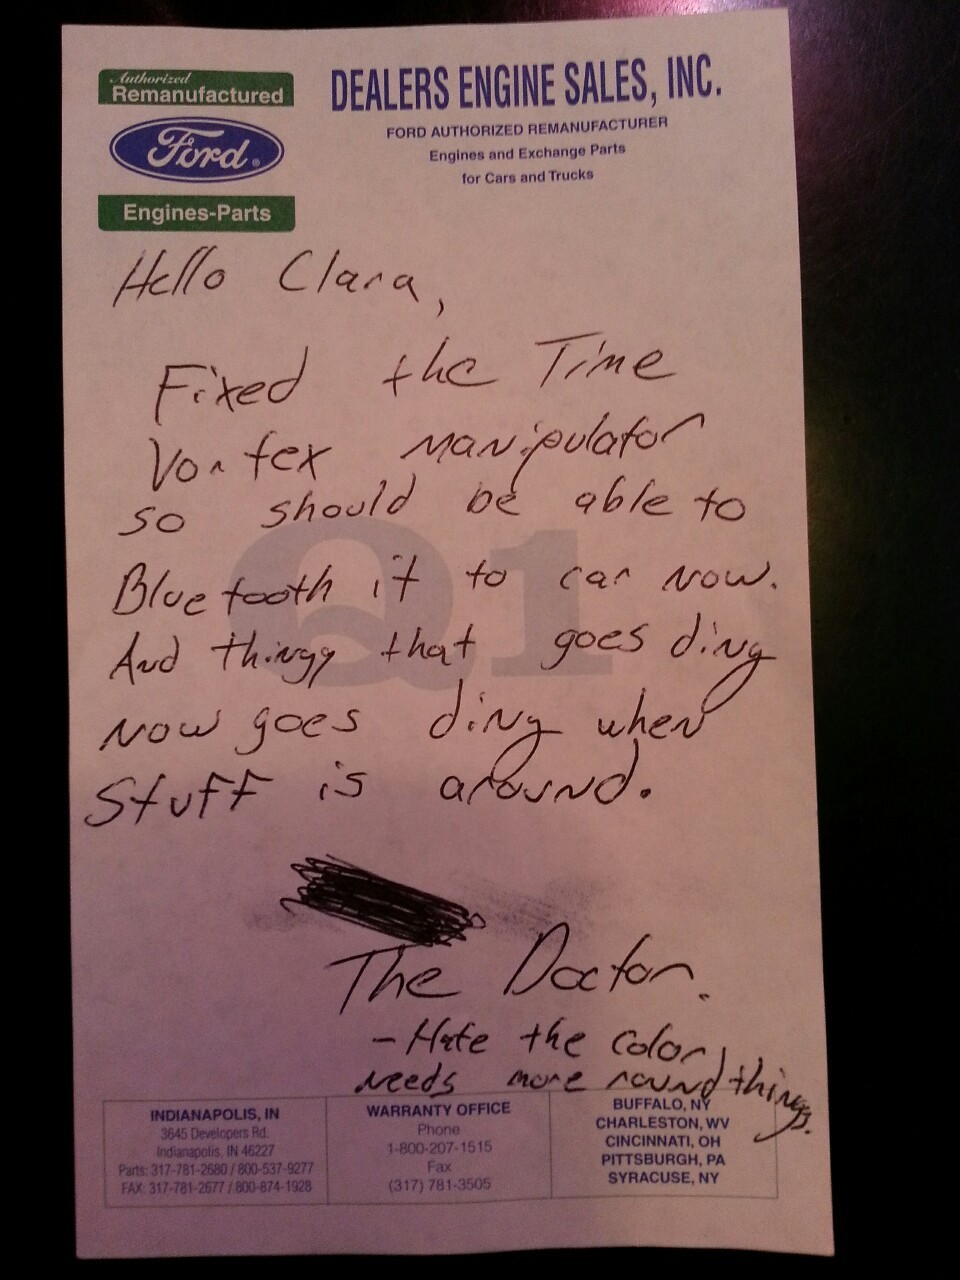 Authorized
Remanufactured
Ford®
Engines-Parts
DEALERS ENGINE SALES, INC.
FORD AUTHORIZED REMANUFACTURER
Engines and Exchange Parts
for Cars and Trucks
Q1
Hello Clara,
Fixed the Time
Vortex Manipulator
so should be able to
Bluetooth it to car now.
And thingy that goes ding
now goes ding when
Stuff is around.
The Doctor.
- Hate the color,
needs more round things.
INDIANAPOLIS, IN
3645 Developers Rd.
Indianapolis, IN 46227
Parts: 317-781-2680 / 800-537-9277
FAX: 317-781-2677 / 800-874-1928
WARRANTY OFFICE
Phone
1-800-207-1515
Fax
(317) 781-3505
BUFFALO, NY
CHARLESTON, WV
CINCINNATI, OH
PITTSBURGH, PA
SYRACUSE, NY